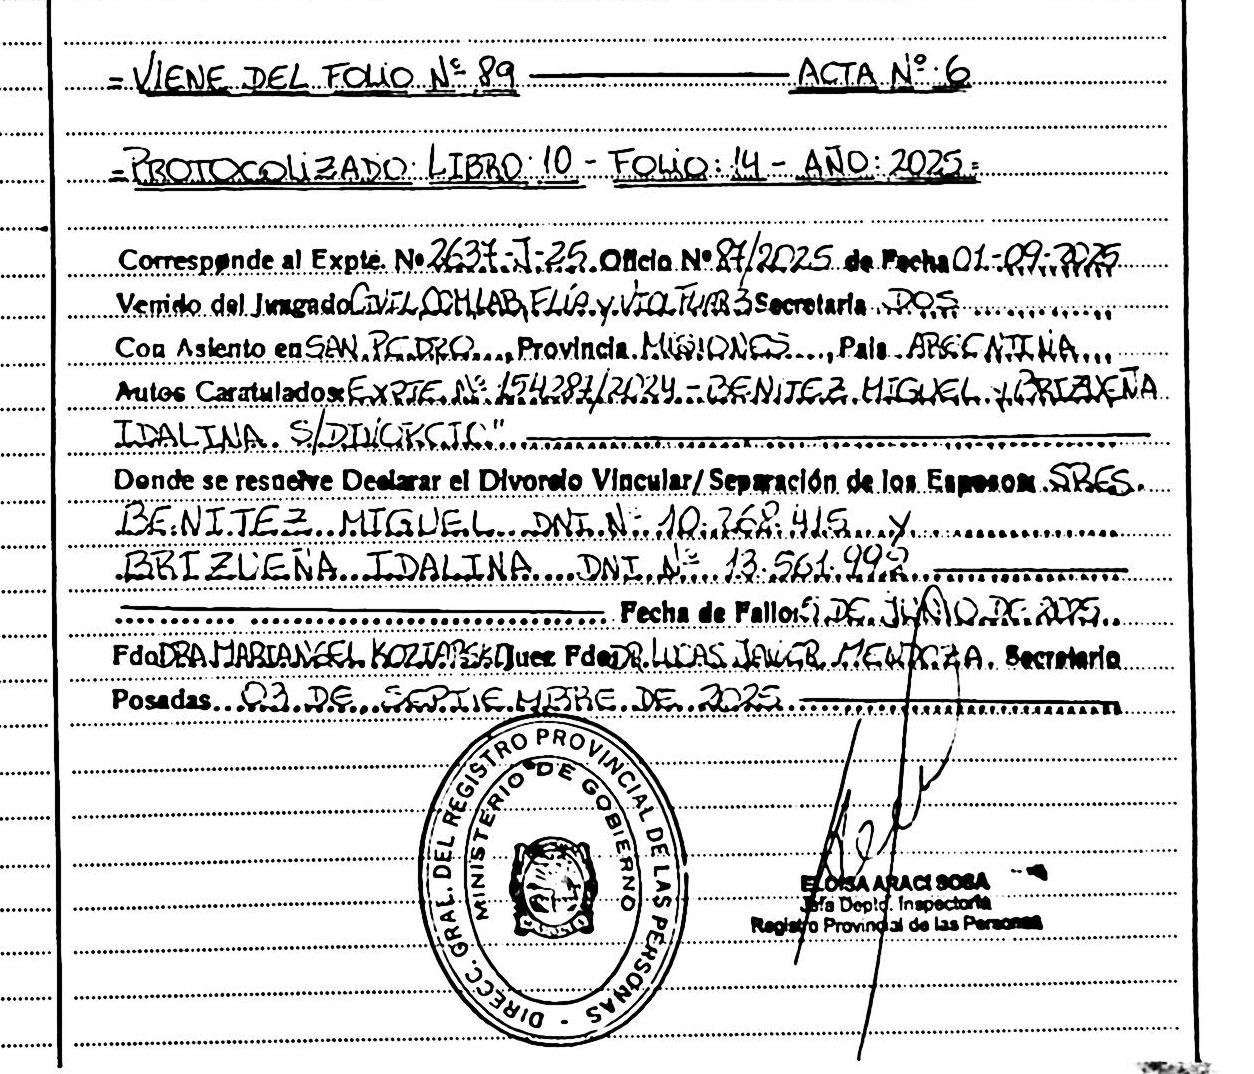 = VIENE DEL FOLIO Nº 89 ACTA Nº: 6
= PROTOCOLIZADO: LIBRO: 10 - FOLIO: 14 - AÑO: 2025 =
Corresponde al Expte. Nº 2637-J-25 Oficio Nº 87/2025 de Fecha 01-09-2025
Venido del Juzgado CIVIL, COM, LAB, FLIA y VIOL FAM 3 Secretaría DOS
Con Asiento en SAN PEDRO, Provincia MISIONES, País ARGENTINA
Autos Caratulados: EXPTE Nº 154287/2024 - BENITEZ MIGUEL y BRIZUEÑA
IDALINA S/DIVORCIO"
Donde se resuelve Declarar el Divorcio Vincular/Separación de los Esposos: SRES.
BENITEZ MIGUEL DNI Nº 10.268.415 y
BRIZUEÑA IDALINA DNI Nº 13.561.992
Fecha de Fallo: 5 DE JUNIO DE 2025
Fdo DRA MARIANGEL KOZIARSKI Juez Fdo: DR. LUCAS JAVIER MENDOZA. Secretario
Posadas 03 DE SEPTIEMBRE DE 2025
DIRECC. GRAL. DEL REGISTRO PROVINCIAL DE LAS PERSONAS -
MINISTERIO DE GOBIERNO
ELOISA ARACI SOSA
Jefa Depto. Inspectoría
Registro Provincial de las Personas